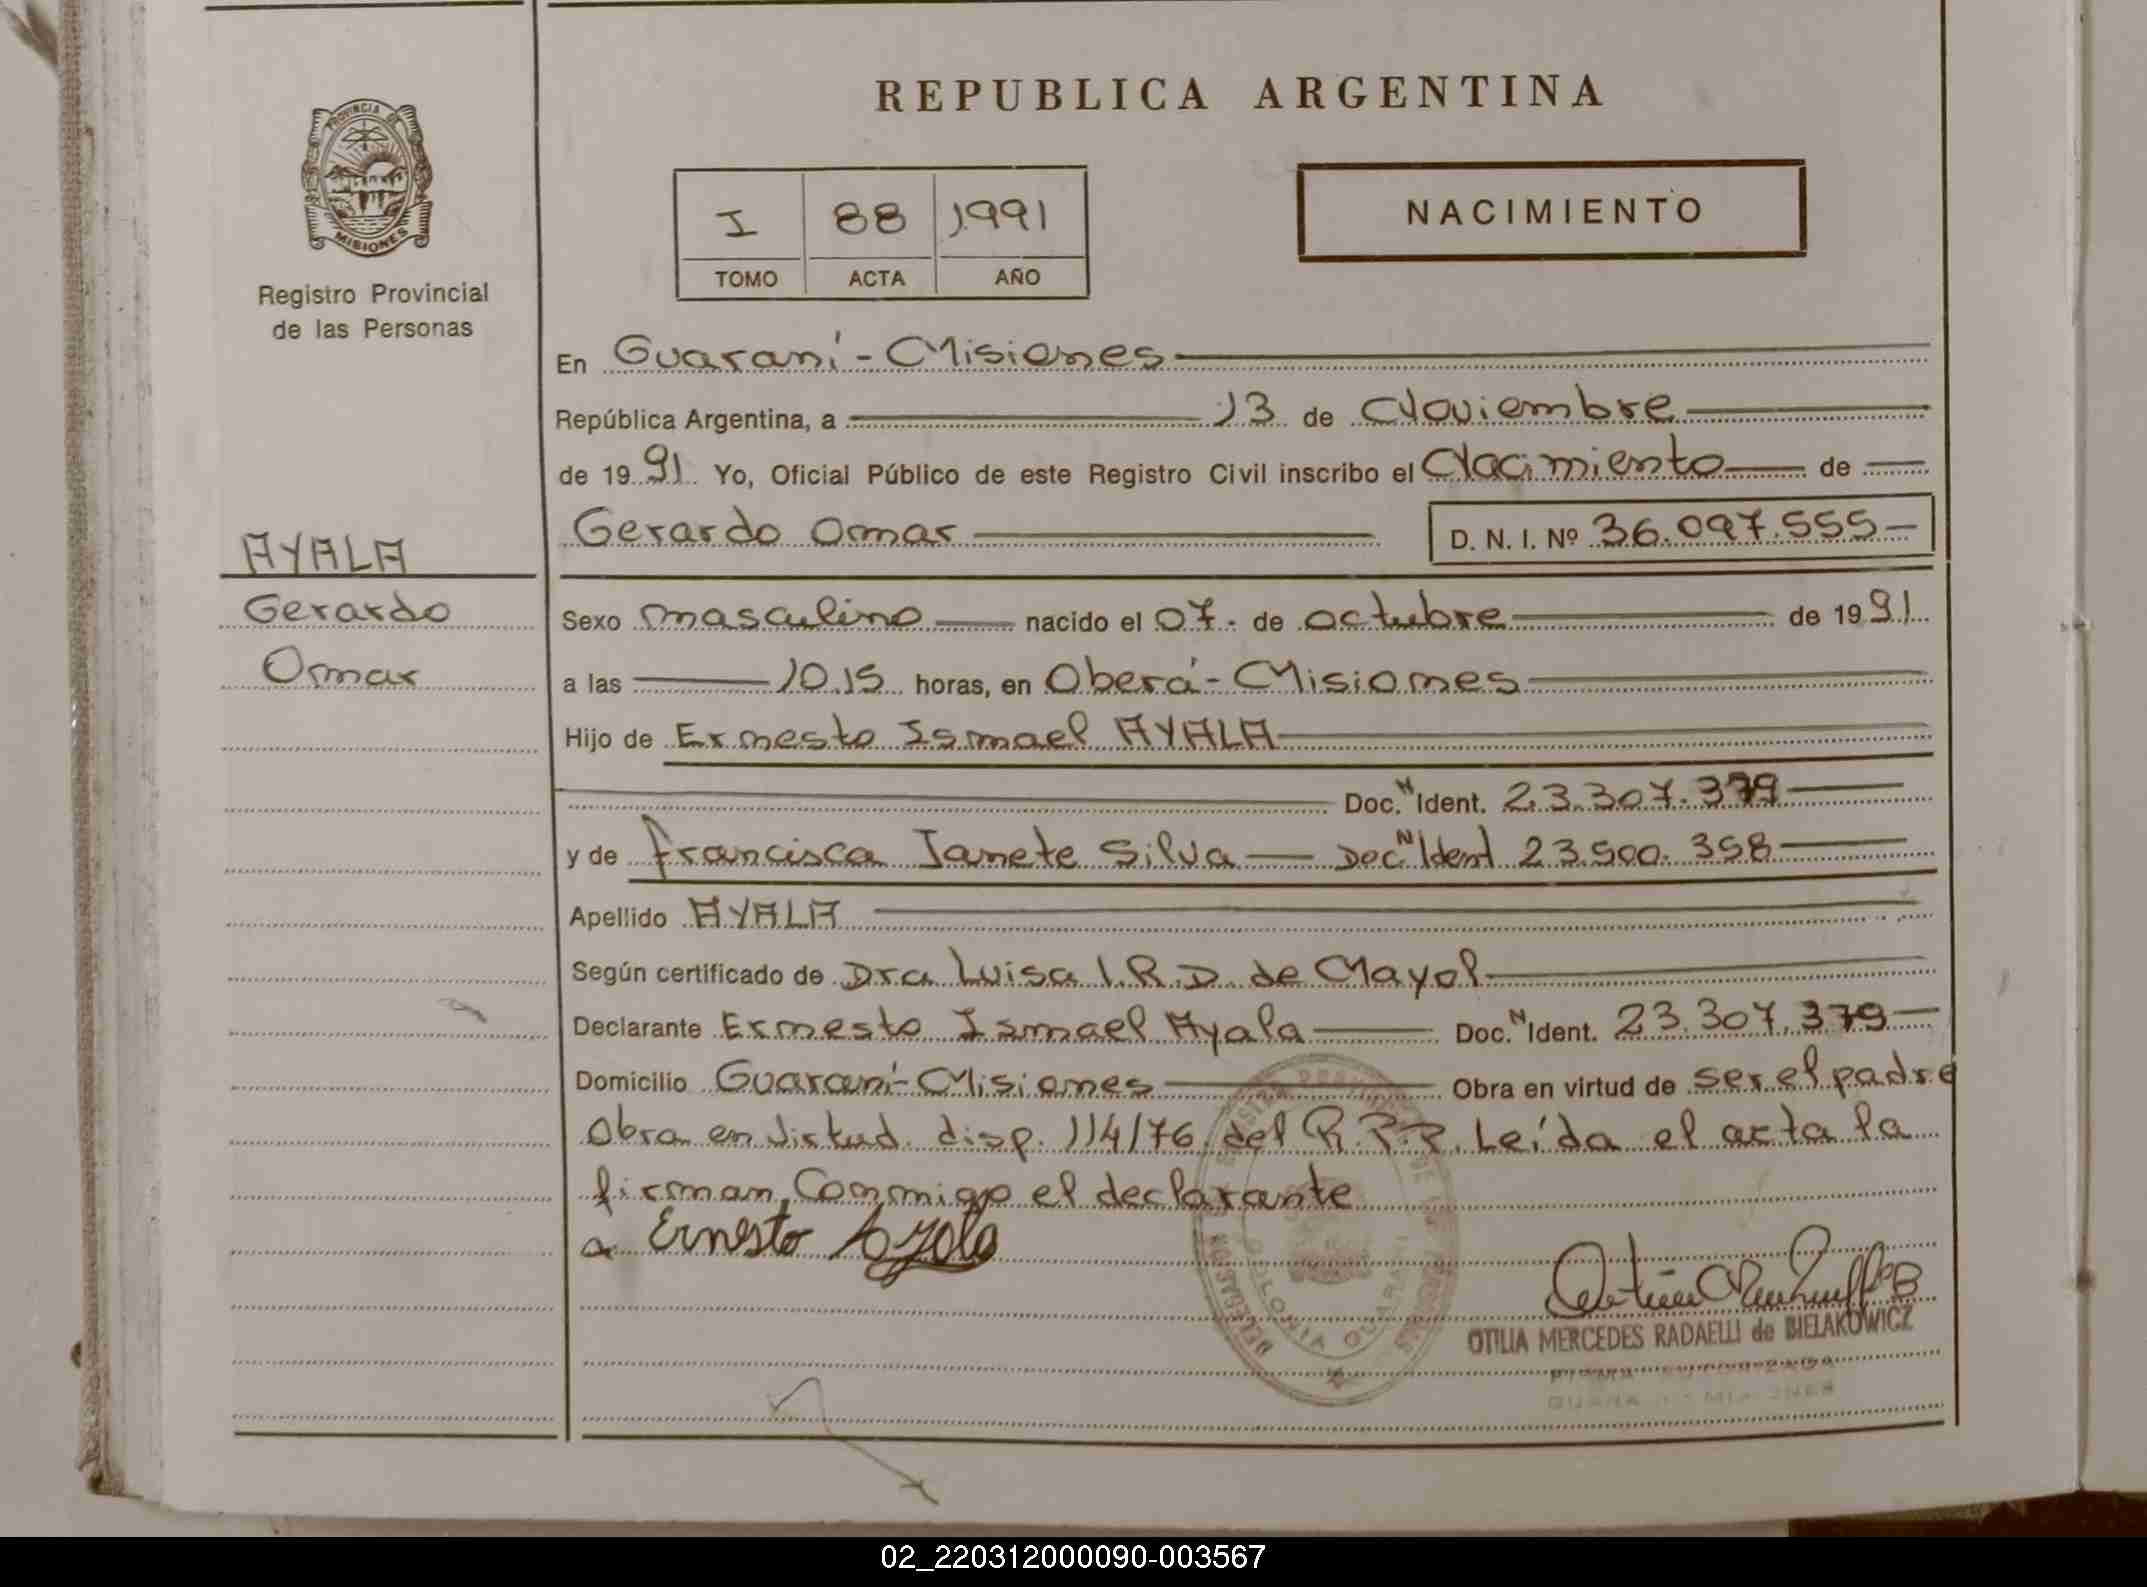 REPUBLICA ARGENTINA
PROVINCIA DE
MISIONES
Registro Provincial
de las Personas
I 88 1991
TOMO ACTA AÑO
NACIMIENTO
En Guaraní-Misiones
República Argentina, a 13 de Noviembre
de 1991 Yo, Oficial Público de este Registro Civil inscribo el Nacimiento de
AYALA
Gerardo Omar D. N. I. Nº 36.097.555
Gerardo
Omar
Sexo masculino nacido el 07. de octubre de 1991
a las 10.15 horas, en Oberá-Misiones
Hijo de Ernesto Ismael AYALA
Doc. N Ident. 23.307.379
y de Francisca Janete Silva Doc N Ident 23.500.358
Apellido AYALA
Según certificado de Dra Luisa I.R.D. de Mayol
Declarante Ernesto Ismael Ayala Doc. N Ident. 23.307.379
Domicilio Guaraní-Misiones Obra en virtud de ser el padre
Obra en virtud disp. 114/76 del R.P.P. Leída el acta la
firman, Conmigo el declarante
Ernesto Ayala
COLONIA GUARANI
OTILIA MERCEDES RADAELLI de BIELAKOWICZ
FIRMA AUTORIZADA
GUARANI - MISIONES
02_220312000090-003567